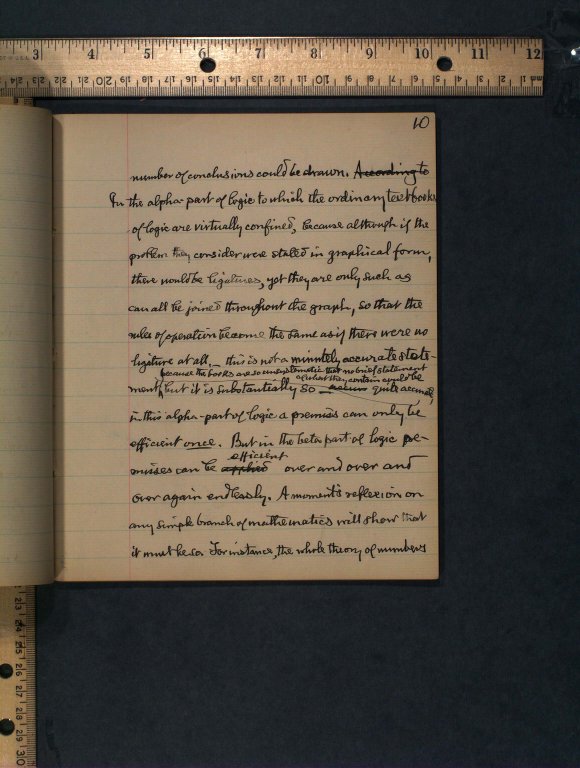 10
number of conclusions could be drawn. According to
In the alpha part of logic to which the ordinary textbooks
of logic are virtually confined, because although if the
problem they consider were stated in graphical form,
there would be ligatures, yet they are only such as
can all be joined throughout the graph, so that the
rules of operation become the same as if there were no
ligature at all,— this is not a minutely accurate state-
because the books are so unsystematic that no brief statement
of what they contain could be
ment, but it is substantially so quite accurate,
in this alpha-part of logic a premiss can only be
efficient once. But in the beta part of logic pre-
efficient
misses can be applied over and over and
over again endlessly. A moment's reflexion on
any simple branch of mathematics will show that
it must be so. For instance, the whole theory of numbers
3 4 5 6 7 8 9 10 11 12